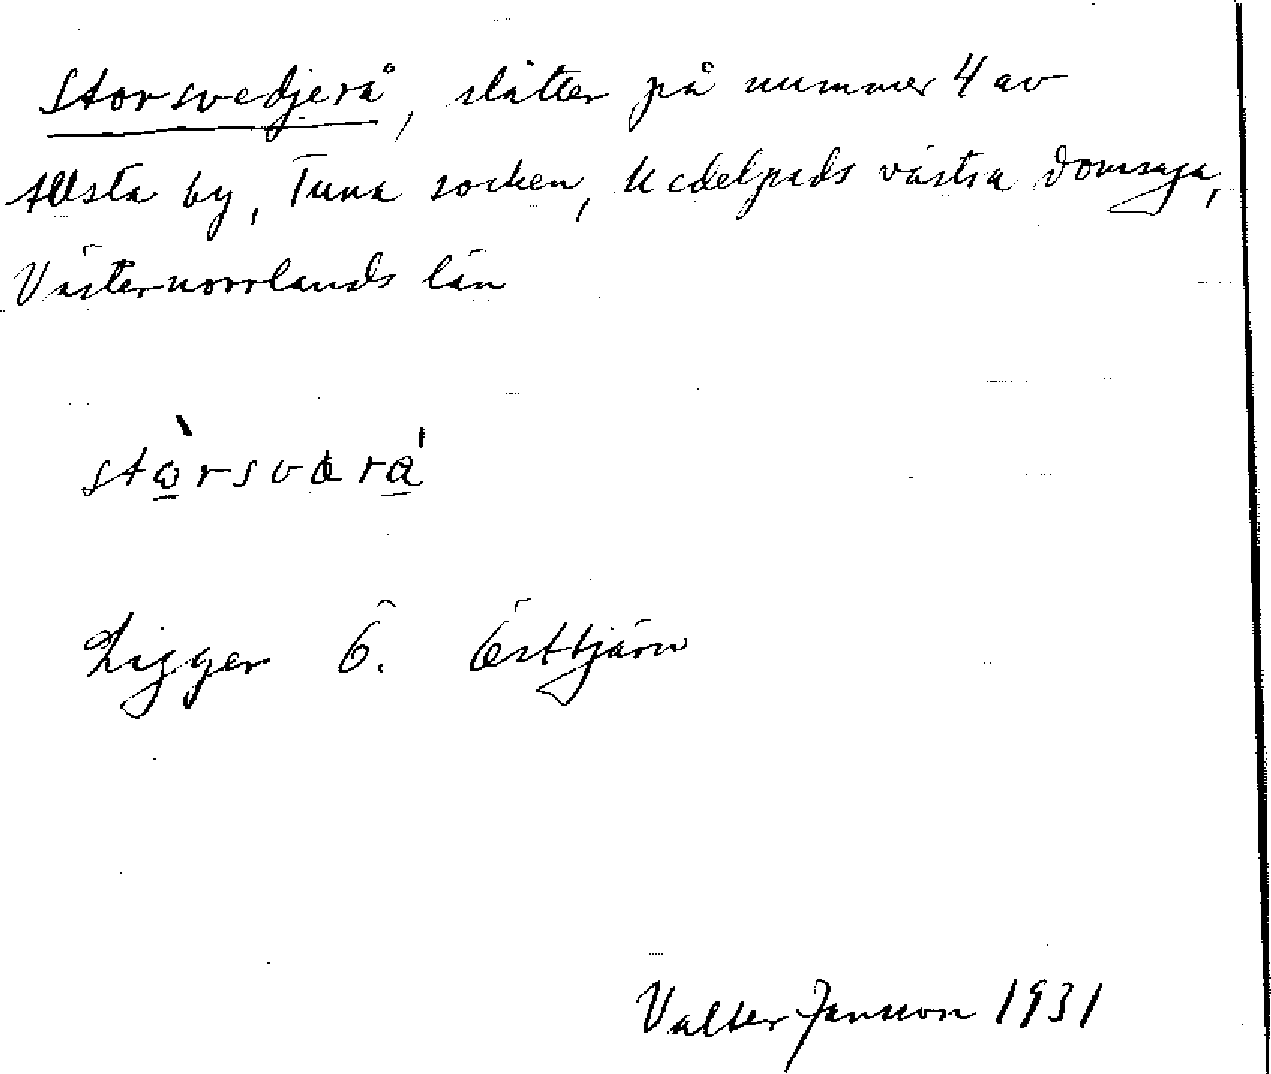 Storsvedjerå, slåtter på nummer 4 av
Allsta by, Tuna socken, Medelpads västra domsaga,
Västernorrlands län
Ligger Ö. Östtjärn
Valter Jansson 1931